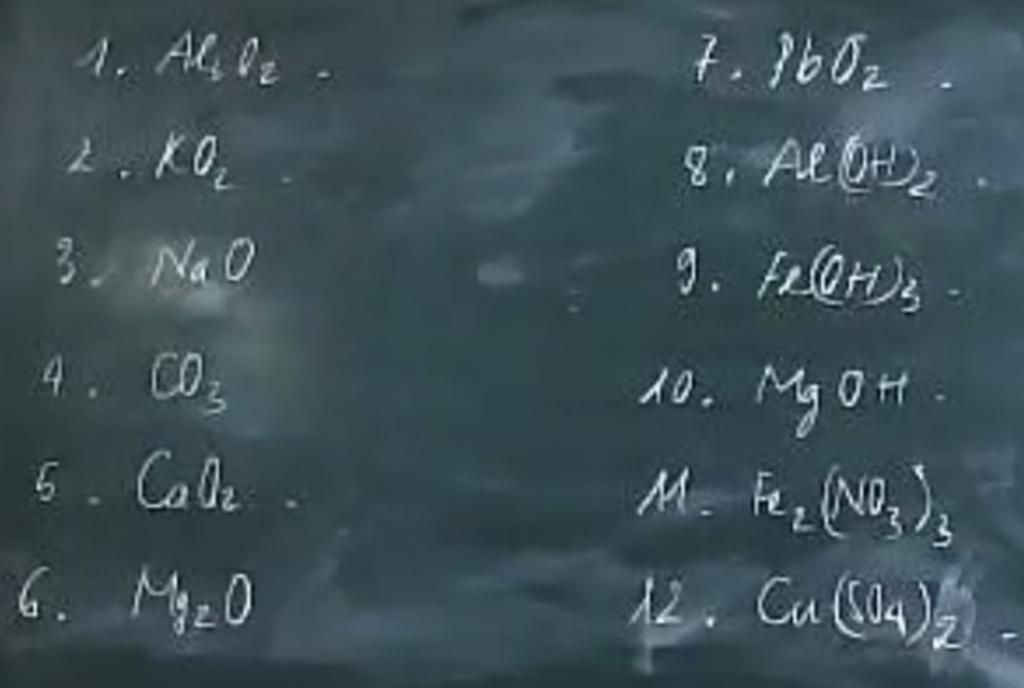 1. Al3O2.
2. KO2.
3. NaO
4. CO3
5. CaO2.
6. Mg2O
7. PbO2.
8. Al(OH)2.
9. Fe(OH)3.
10. MgOH.
11. Fe2(NO3)3
12. Cu(SO4)2.